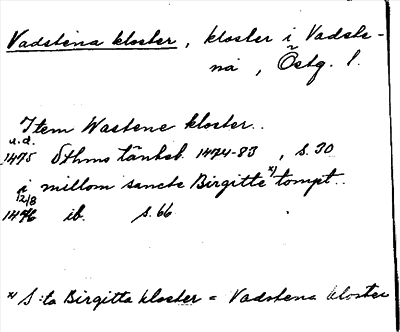 Vadstena kloster, kloster i Vadste-
na, Östg. l.
Item Wastene kloster..
u.d.
1475 Sthms tänkeb. 1474-83, s. 30
i millom sancte Birgitte x) tompt..
12/8
1476 ib. s. 66
x) S:ta Birgitta kloster = Vadstena kloster